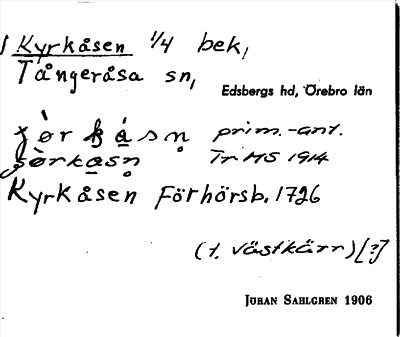 Kyrkåsen 1/4 bek,
Tångeråsa sn,
Edsbergs hd, Örebro län
prim.-ant.
TrMS 1914
Kyrkåsen Förhörsb. 1726
(t. Västkärr)[?]
JÖRAN SAHLGREN 1906